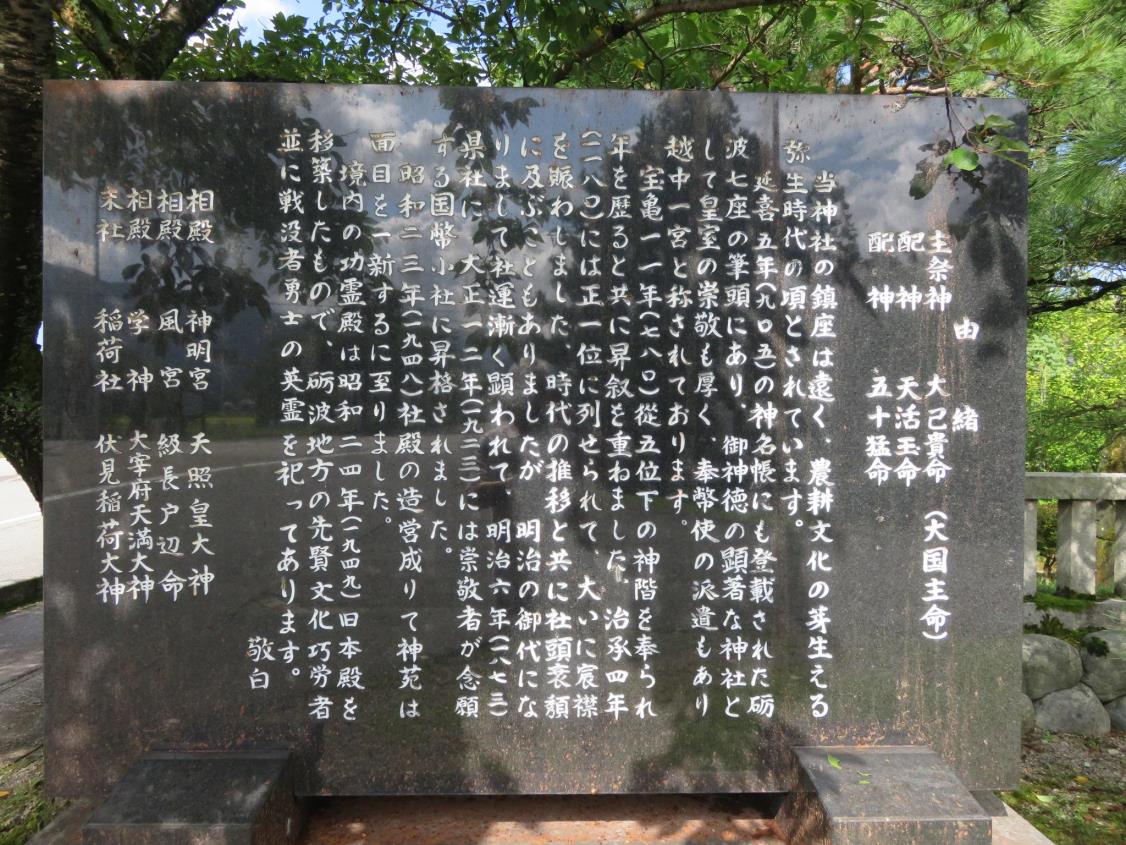 由緒
主祭神 大己貴命(大国主命)
配神 天活玉命
配神 五十猛命
当神社の鎮座は遠く、農耕文化の芽生える
弥生時代の頃とされています。
延喜五年(九〇五)の神名帳にも登載された砺
波七座の筆頭にあり、御神徳の顕著な神社と
して皇室の崇敬も厚く、奉幣使の派遣もあり
越中一宮と称されております。
宝亀一一年(七八〇)従五位下の神階を奉られ
年を歴ると共に昇叙を重ねました。治承四年
(一一八〇)には正一位に列せられて、大いに宸襟
を賑わしました、時代の推移と共に社頭衰頽
に及ぶこともありましたが 明治の御代にな
りまして社運漸く顕われて、明治六年(一八七三)
県社に 大正一二年(一九二三)には崇敬者が念願
する国幣小社に昇格されました。
昭和二三年(一九四八)社殿の造営成りて神苑は
面目を一新するに至りました。
境内の功霊殿は昭和二四年(一九四九)旧本殿を
移築したもので、砺波地方の先賢文化巧労者
並に戦没者勇士の英霊を祀ってあります。
敬白
相殿 神明宮 天照皇大神
相殿 風宮 級長戸辺命
相殿 学神 大宰府天満大神
末社 稲荷社 伏見稲荷大神